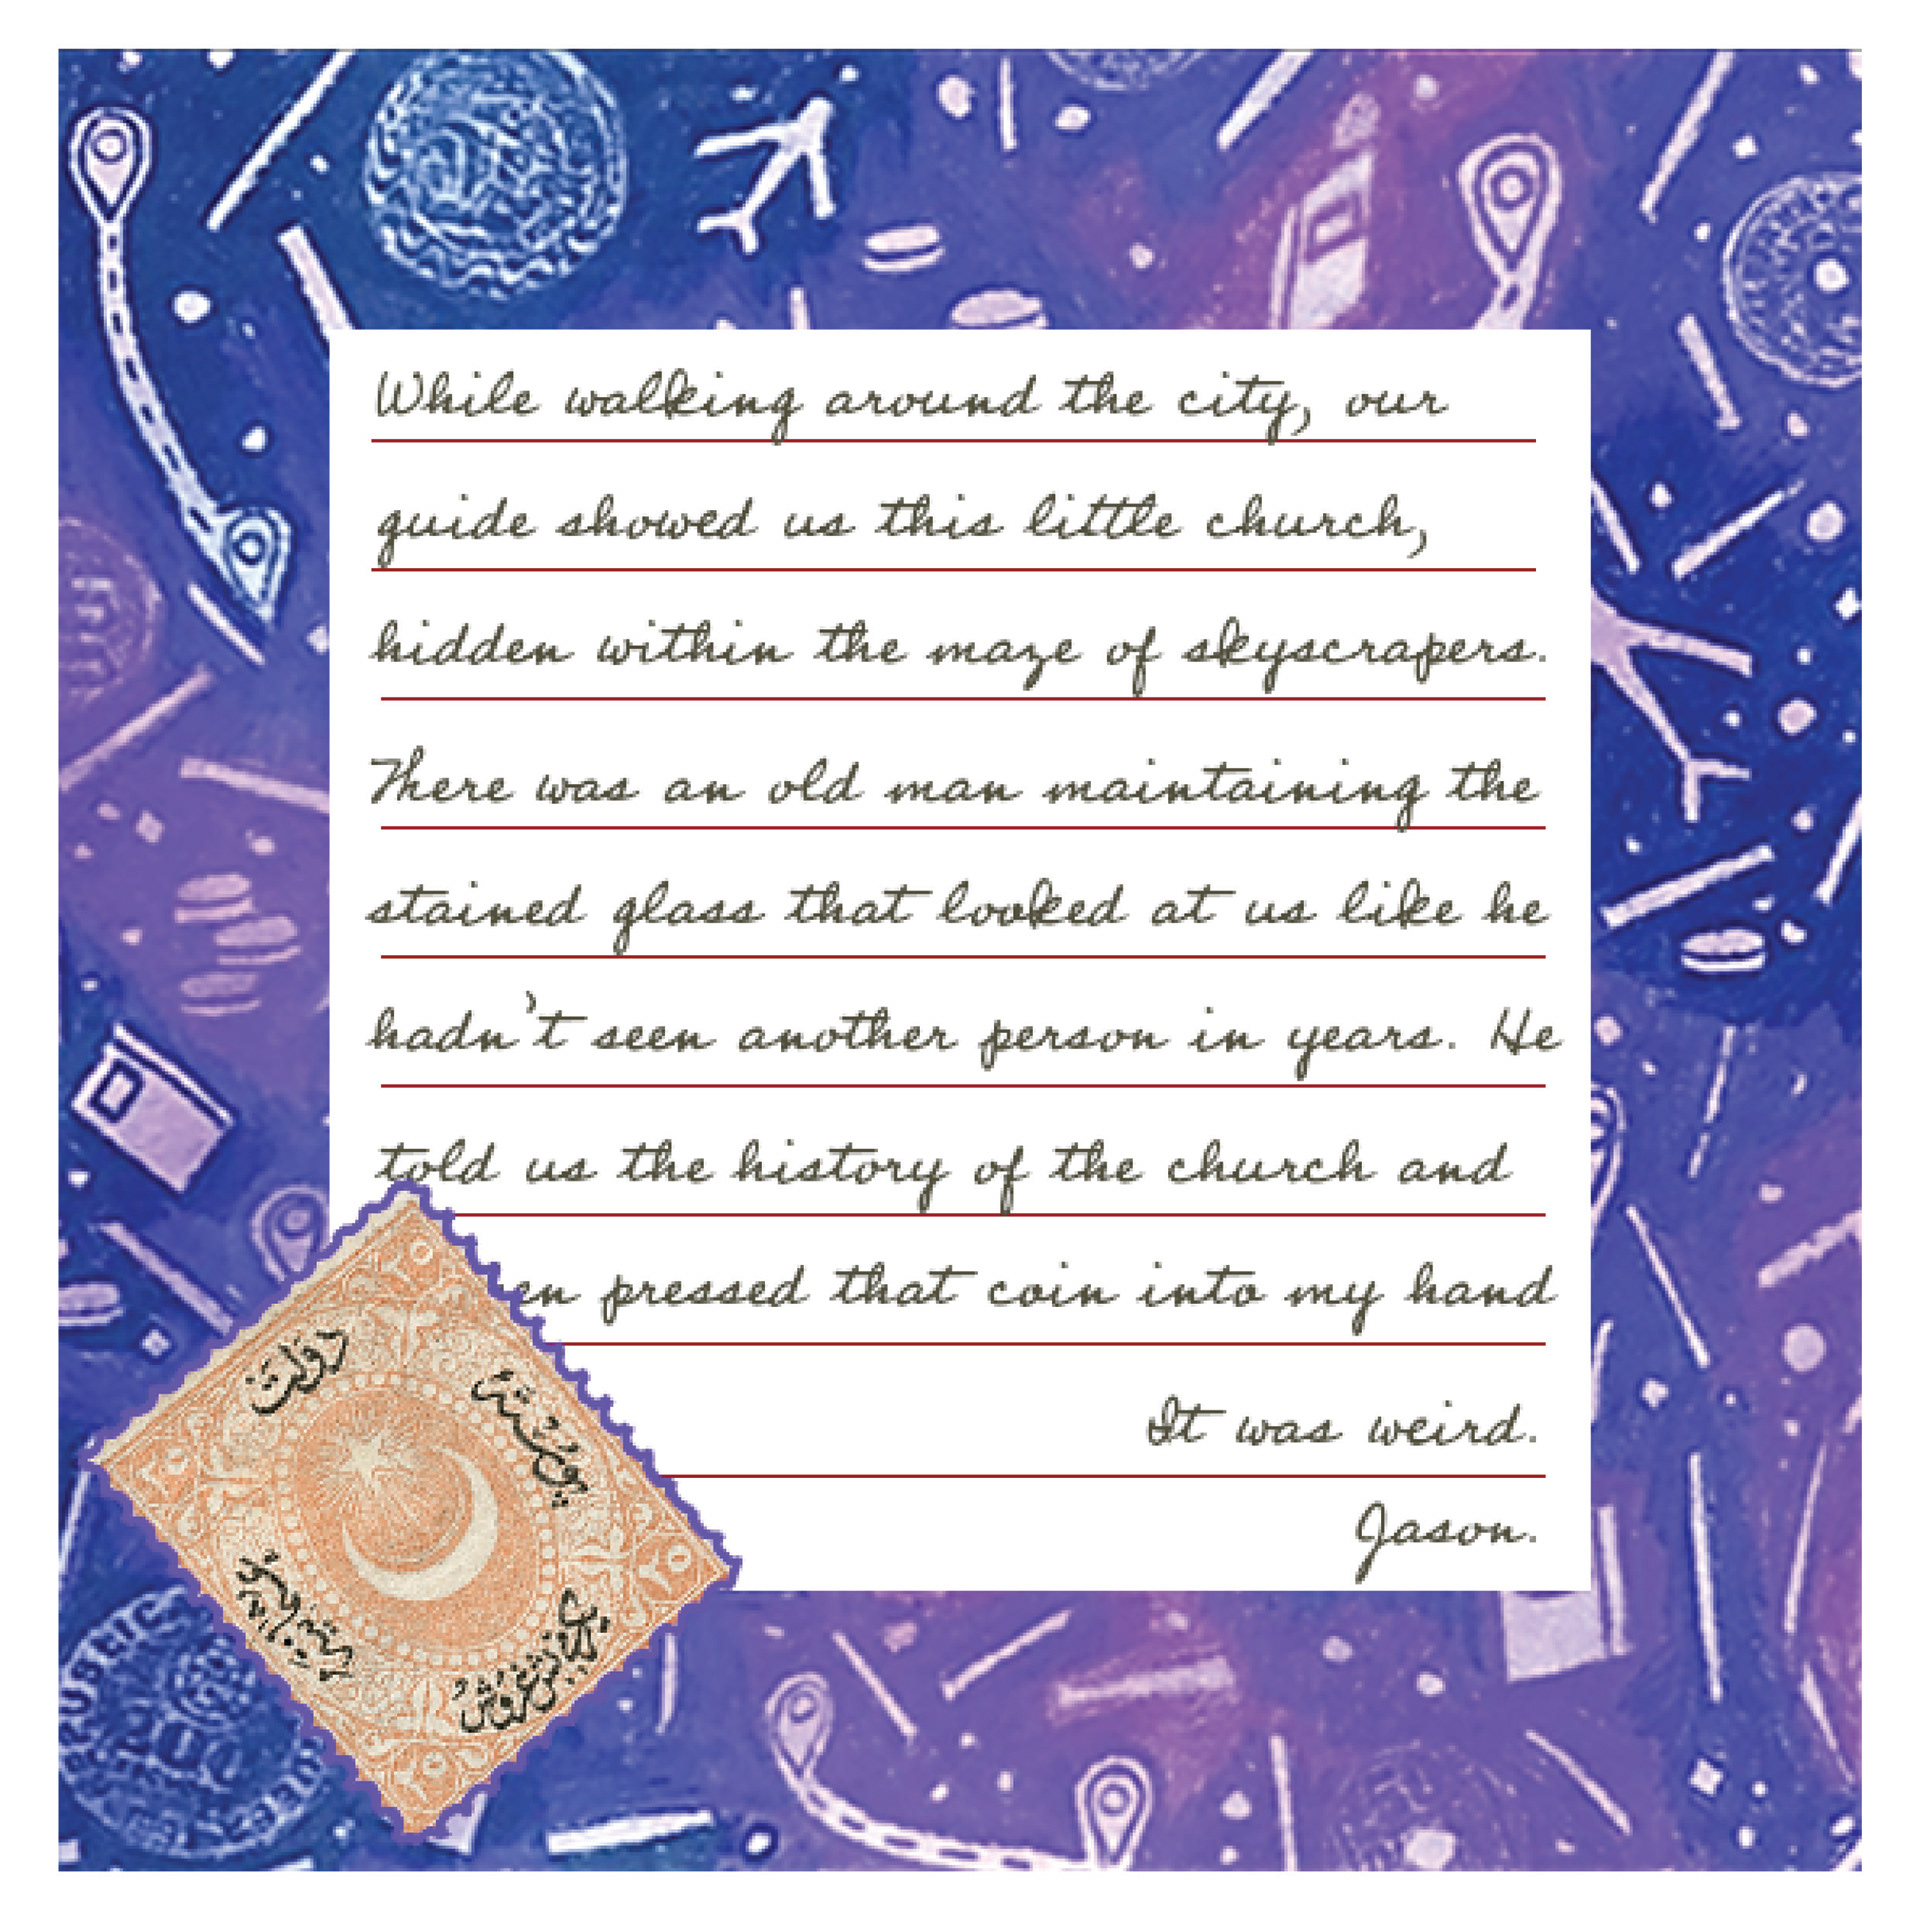 While walking around the city, our
guide showed us this little church,
hidden within the maze of skyscrapers.
There was an old man maintaining the
stained glass that looked at us like he
hadn't seen another person in years. He
told us the history of the church and
en pressed that coin into my hand
It was weird.
Jason.
دولت